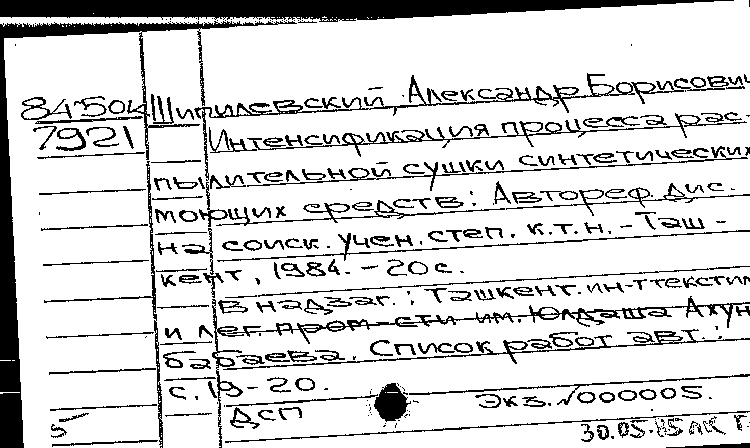 845OK Шипилевский, Александр Борисович
7921 Интенсификация процесса рас-
пылительной сушки синтетических
моющих средств: Автореф. дис.
на соиск. учен. степ. к.т.н. - Таш -
кент, 1984. - 20 с.
В надзаг.: Ташкент. ин-т текстил
и лег. пром-сти им. Юлдаша Ахун
бабаева. Список работ авт.:
с. 19-20.
ДСП Экз. №000005.
5 30.05.85